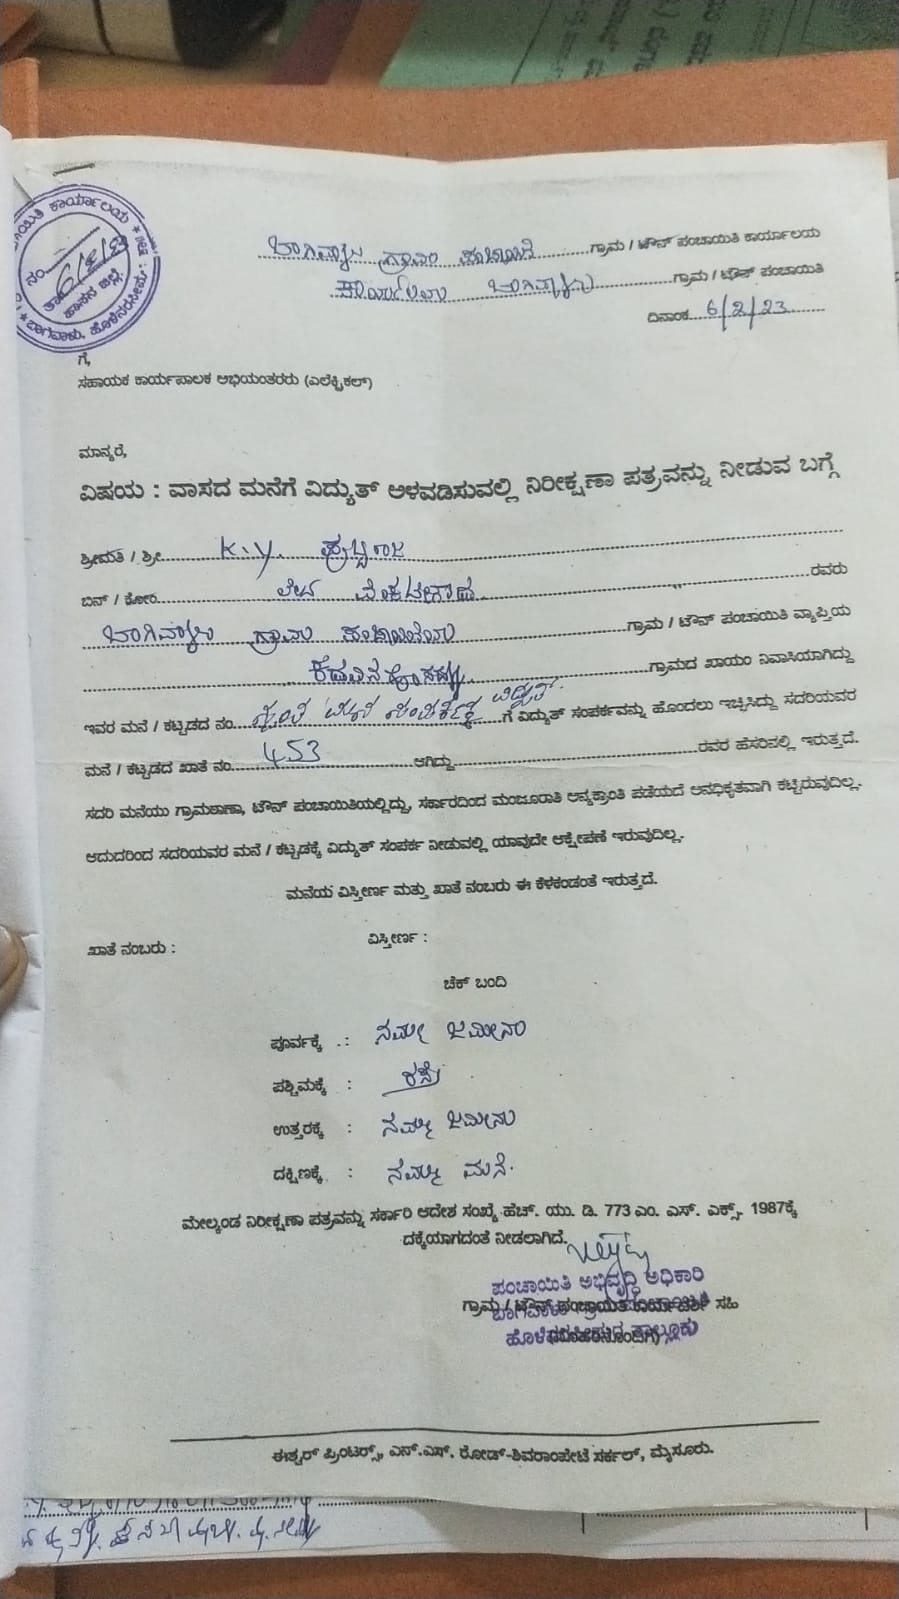 ಕಾರ್ಯಾಲಯ
ಬಾಗಿವಾಳು ಗ್ರಾಮ ಪಂಚಾಯಿತಿ ಗ್ರಾಮ / ಟೌನ್ ಪಂಚಾಯಿತಿ ಕಾರ್ಯಾಲಯ
ಕಾರ್ಯಾಲಯ ಬಾಗಿವಾಳು ಗ್ರಾಮ / ಟೌನ್ ಪಂಚಾಯಿತಿ
ದಿನಾಂಕ 6/2/23
ನಂ.
ತಾ॥ 6/2/23
ಹಾಸನ ಜಿಲ್ಲೆ
ಬಾಗಿವಾಳು, ಹೊಳೆನರಸೀಪುರ
ಗೆ,
ಸಹಾಯಕ ಕಾರ್ಯಪಾಲಕ ಅಭಿಯಂತರರು (ಎಲೆಕ್ಟ್ರಿಕಲ್)
ಮಾನ್ಯರೆ,
ವಿಷಯ : ವಾಸದ ಮನೆಗೆ ವಿದ್ಯುತ್ ಅಳವಡಿಸುವಲ್ಲಿ ನಿರೀಕ್ಷಣಾ ಪತ್ರವನ್ನು ನೀಡುವ ಬಗ್ಗೆ
ಶ್ರೀಮತಿ / ಶ್ರೀ K.Y. ಪುಟ್ಟರಾಜು
ಬಿನ್ / ಕೋಂ ಲೇಟ್ ವೆಂಕಟೇಗೌಡ ರವರು
ಬಾಗಿವಾಳು ಗ್ರಾಮ ಪಂಚಾಯಿತಿಯ ಗ್ರಾಮ / ಟೌನ್ ಪಂಚಾಯಿತಿ ವ್ಯಾಪ್ತಿಯ
ಗ್ರಾಮದ ಖಾಯಂ ನಿವಾಸಿಯಾಗಿದ್ದು
ಇವರ ಮನೆ / ಕಟ್ಟಡದ ನಂ. ವಿದ್ಯುತ್ ಗೆ ವಿದ್ಯುತ್ ಸಂಪರ್ಕವನ್ನು ಹೊಂದಲು ಇಚ್ಛಿಸಿದ್ದು ಸದರಿಯವರ
ಮನೆ / ಕಟ್ಟಡದ ಖಾತೆ ನಂ. 453 ಆಗಿದ್ದು ರವರ ಹೆಸರಿನಲ್ಲಿ ಇರುತ್ತದೆ.
ಸದರಿ ಮನೆಯು ಗ್ರಾಮಠಾಣಾ, ಟೌನ್ ಪಂಚಾಯಿತಿಯಲ್ಲಿದ್ದು, ಸರ್ಕಾರದಿಂದ ಮಂಜೂರಾತಿ ಅನ್ಯಕ್ರಾಂತಿ ಪಡೆಯದೆ ಅನಧಿಕೃತವಾಗಿ ಕಟ್ಟಿರುವುದಿಲ್ಲ.
ಆದುದರಿಂದ ಸದರಿಯವರ ಮನೆ / ಕಟ್ಟಡಕ್ಕೆ ವಿದ್ಯುತ್ ಸಂಪರ್ಕ ನೀಡುವಲ್ಲಿ ಯಾವುದೇ ಆಕ್ಷೇಪಣೆ ಇರುವುದಿಲ್ಲ.
ಮನೆಯ ವಿಸ್ತೀರ್ಣ ಮತ್ತು ಖಾತೆ ನಂಬರು ಈ ಕೆಳಕಂಡಂತೆ ಇರುತ್ತದೆ.
ಖಾತೆ ನಂಬರು : ವಿಸ್ತೀರ್ಣ :
ಚೆಕ್ ಬಂದಿ
ಪೂರ್ವಕ್ಕೆ : ನಮ್ಮ ಜಮೀನು
ಪಶ್ಚಿಮಕ್ಕೆ : ರಸ್ತೆ
ಉತ್ತರಕ್ಕೆ : ನಮ್ಮ ಜಮೀನು
ದಕ್ಷಿಣಕ್ಕೆ : ನಮ್ಮ ಮನೆ.
ಮೇಲ್ಕಂಡ ನಿರೀಕ್ಷಣಾ ಪತ್ರವನ್ನು ಸರ್ಕಾರಿ ಆದೇಶ ಸಂಖ್ಯೆ ಹೆಚ್. ಯು. ಡಿ. 773 ಎಂ. ಎಸ್. ಎಕ್ಸ್. 1987ಕ್ಕೆ
ದಕ್ಕೆಯಾಗದಂತೆ ನೀಡಲಾಗಿದೆ.
ಪಂಚಾಯಿತಿ ಅಭಿವೃದ್ಧಿ ಅಧಿಕಾರಿ
ಗ್ರಾಮ / ಟೌನ್ ಪಂಚಾಯಿತಿ ಕಾರ್ಯದರ್ಶಿ ಸಹಿ
ಹೊಳೆನರಸೀಪುರ ತಾಲ್ಲೂಕು
ಈಶ್ವರ್ ಪ್ರಿಂಟರ್ಸ್, ಎನ್.ಎಸ್. ರೋಡ್-ಶಿವರಾಂಪೇಟೆ ಸರ್ಕಲ್, ಮೈಸೂರು.